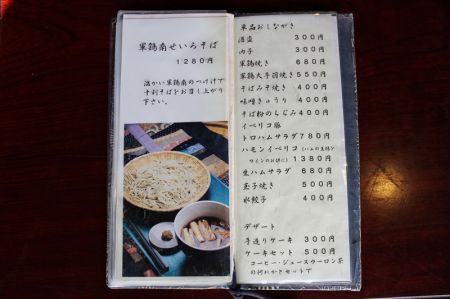 軍鶏南せいろそば
１２８０円
温かい軍鶏南のつけ汁で
十割そばをお召し上がり
下さい。
単品おしながき
酒盗 ３００円
内子 ３００円
軍鶏焼き ６８０円
軍鶏大手羽焼き ５５０円
そばみそ焼き ４００円
味噌きゅうり ４００円
そば粉のちぢみ ４００円
イベリコ豚
トロハムサラダ ７８０円
ハモンイベリコ（ハムの王様
ワインのお供に） １３８０円
生ハムサラダ ６８０円
玉子焼き ５５０円
水餃子 ４００円
デザート
手造りケーキ ３００円
ケーキセット ５００円
コーヒー・ジュースウーロン茶
の何れかとセットで